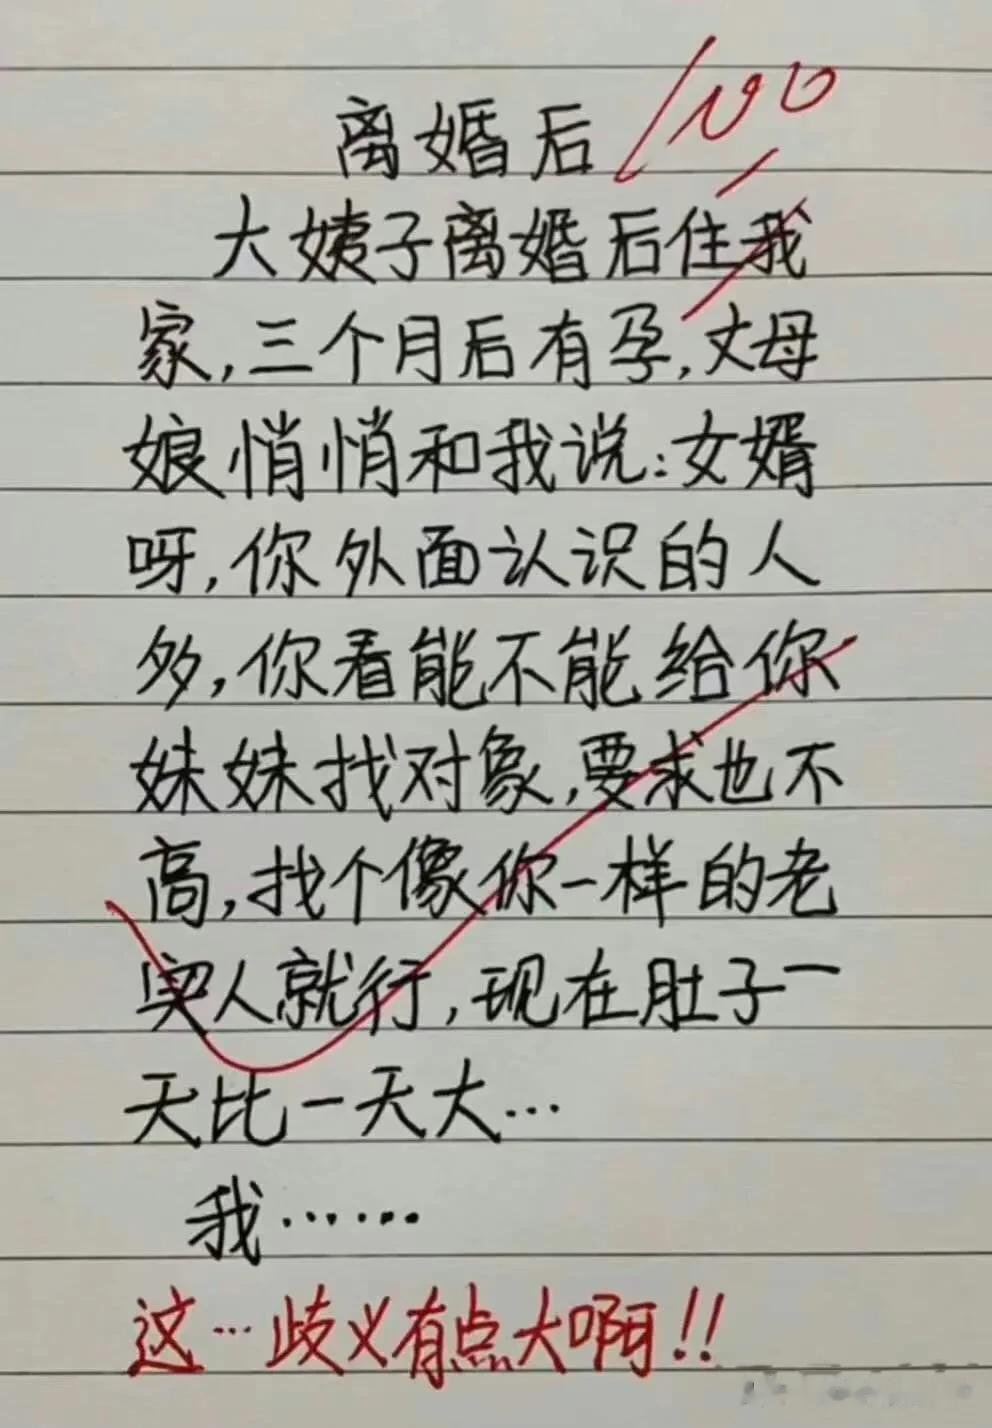 离婚后
100
大姨子离婚后住我
家,三个月后有孕,丈母
娘悄悄和我说:女婿
呀,你外面认识的人
多,你看能不能给你
妹妹找对象,要求也不
高,找个像你一样的老
实人就行,现在肚子一
天比一天大…
我……
这…歧义有点大啊!!